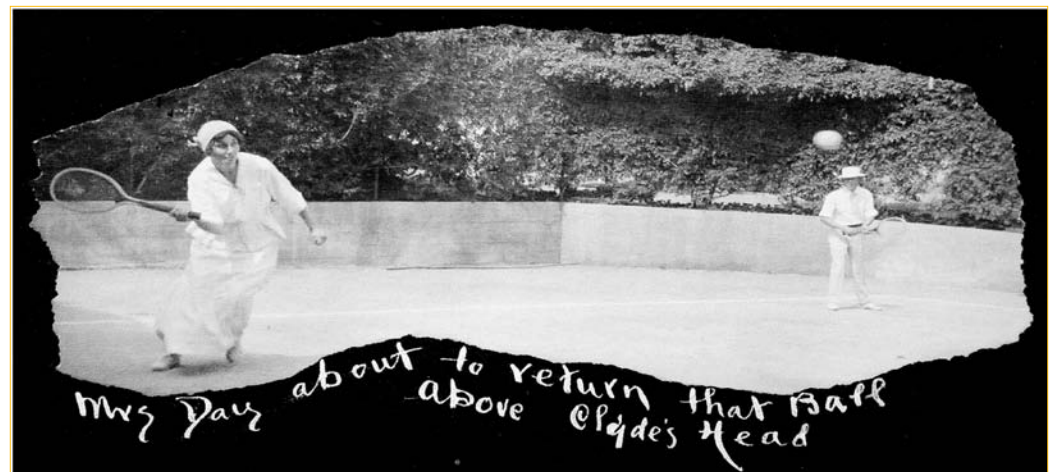 Mrs Day about to return that Ball
above Clyde's Head